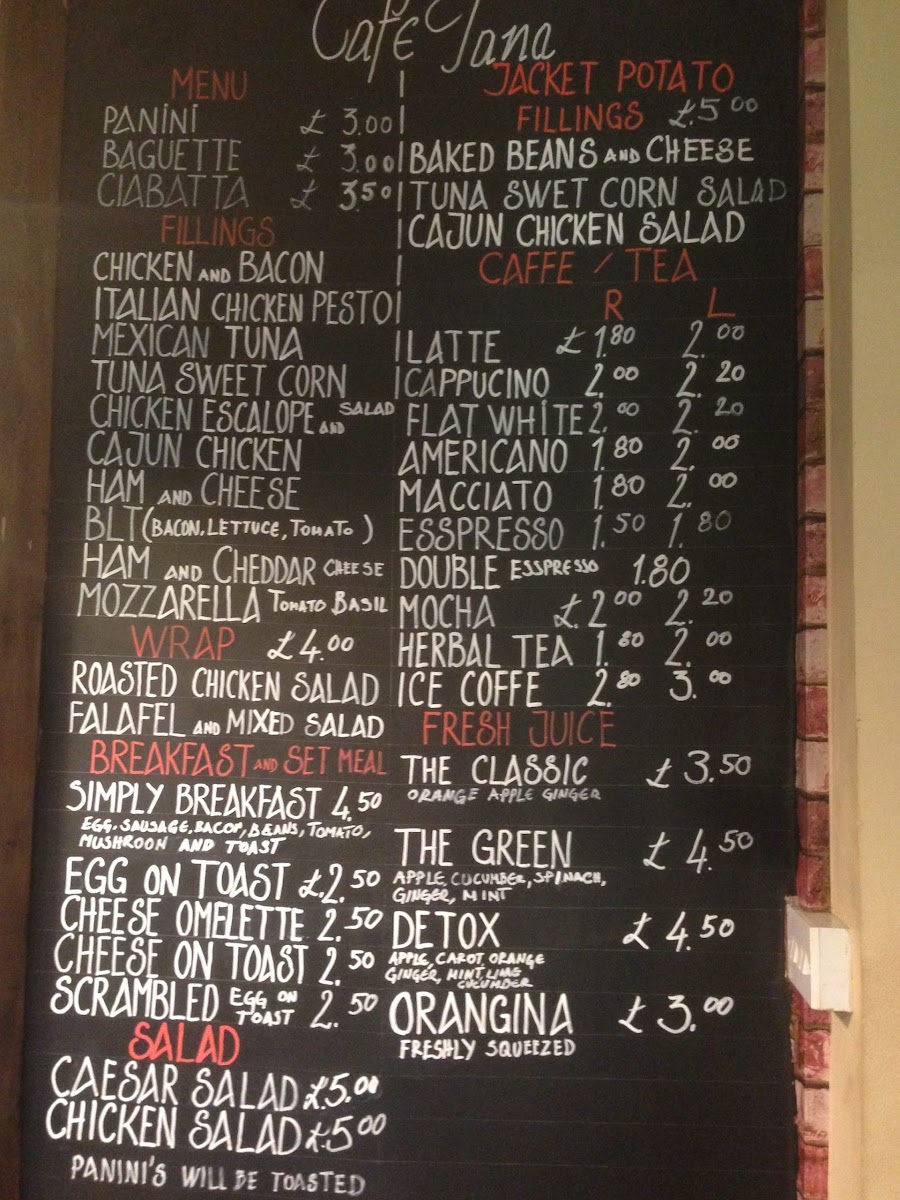 Café Tana
MENU
PANINI £ 3.00
BAGUETTE £ 3.00
CIABATTA £ 3.50
FILLINGS
CHICKEN AND BACON
ITALIAN CHICKEN PESTO
MEXICAN TUNA
TUNA SWEET CORN
CHICKEN ESCALOPE AND SALAD
CAJUN CHICKEN
HAM AND CHEESE
BLT (BACON, LETTUCE, TOMATO)
HAM AND CHEDDAR CHEESE
MOZZARELLA TOMATO BASIL
WRAP £4.00
ROASTED CHICKEN SALAD
FALAFEL AND MIXED SALAD
BREAKFAST AND SET MEAL
SIMPLY BREAKFAST 4.50
EGG, SAUSAGE, BACOP, BEANS, TOMATO,
MUSHROON AND TOAST
EGG ON TOAST £.2.50
CHEESE OMELETTE 2.50
CHEESE ON TOAST 2.50
SCRAMBLED EGG ON TOAST 2.50
SALAD
CAESAR SALAD £.5.00
CHICKEN SALAD £.5.00
PANINI'S WILL BE TOASTED
JACKET POTATO
FILLINGS £.5.00
BAKED BEANS AND CHEESE
TUNA SWET CORN SALAD
CAJUN CHICKEN SALAD
CAFFE / TEA
R L
LATTE £ 1.80 2.00
CAPPUCINO 2.00 2.20
FLAT WHITE 2.00 2.20
AMERICANO 1.80 2.00
MACCIATO 1.80 2.00
ESSPRESSO 1.50 1.80
DOUBLE ESSPRESSO 1.80
MOCHA £.2.00 2.20
HERBAL TEA 1.80 2.00
ICE COFFE 2.80 3.00
FRESH JUICE
THE CLASSIC £ 3.50
ORANGE APPLE GINGER
THE GREEN £ 4.50
APPLE, CUCUMBER, SPINACH,
GINGER, MINT
DETOX £ 4.50
APPLE, CAROT, ORANGE
GINGER, MINT, LIME
CUCUMBER
ORANGINA £ 3.00
FRESHLY SQUEEZED